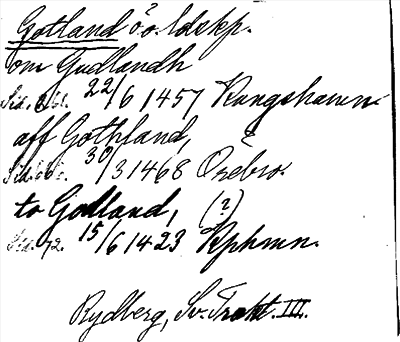 Gotland ö. o. ldskp.
om Gudlandh
22/6 1457 Kungshamn.
aff Gothland,
30/3 1468 Örebro.
to Godland, (?)
Sid. 72. 15/6 1423 Kphmn.
Rydberg, Sv. Trakt. III.